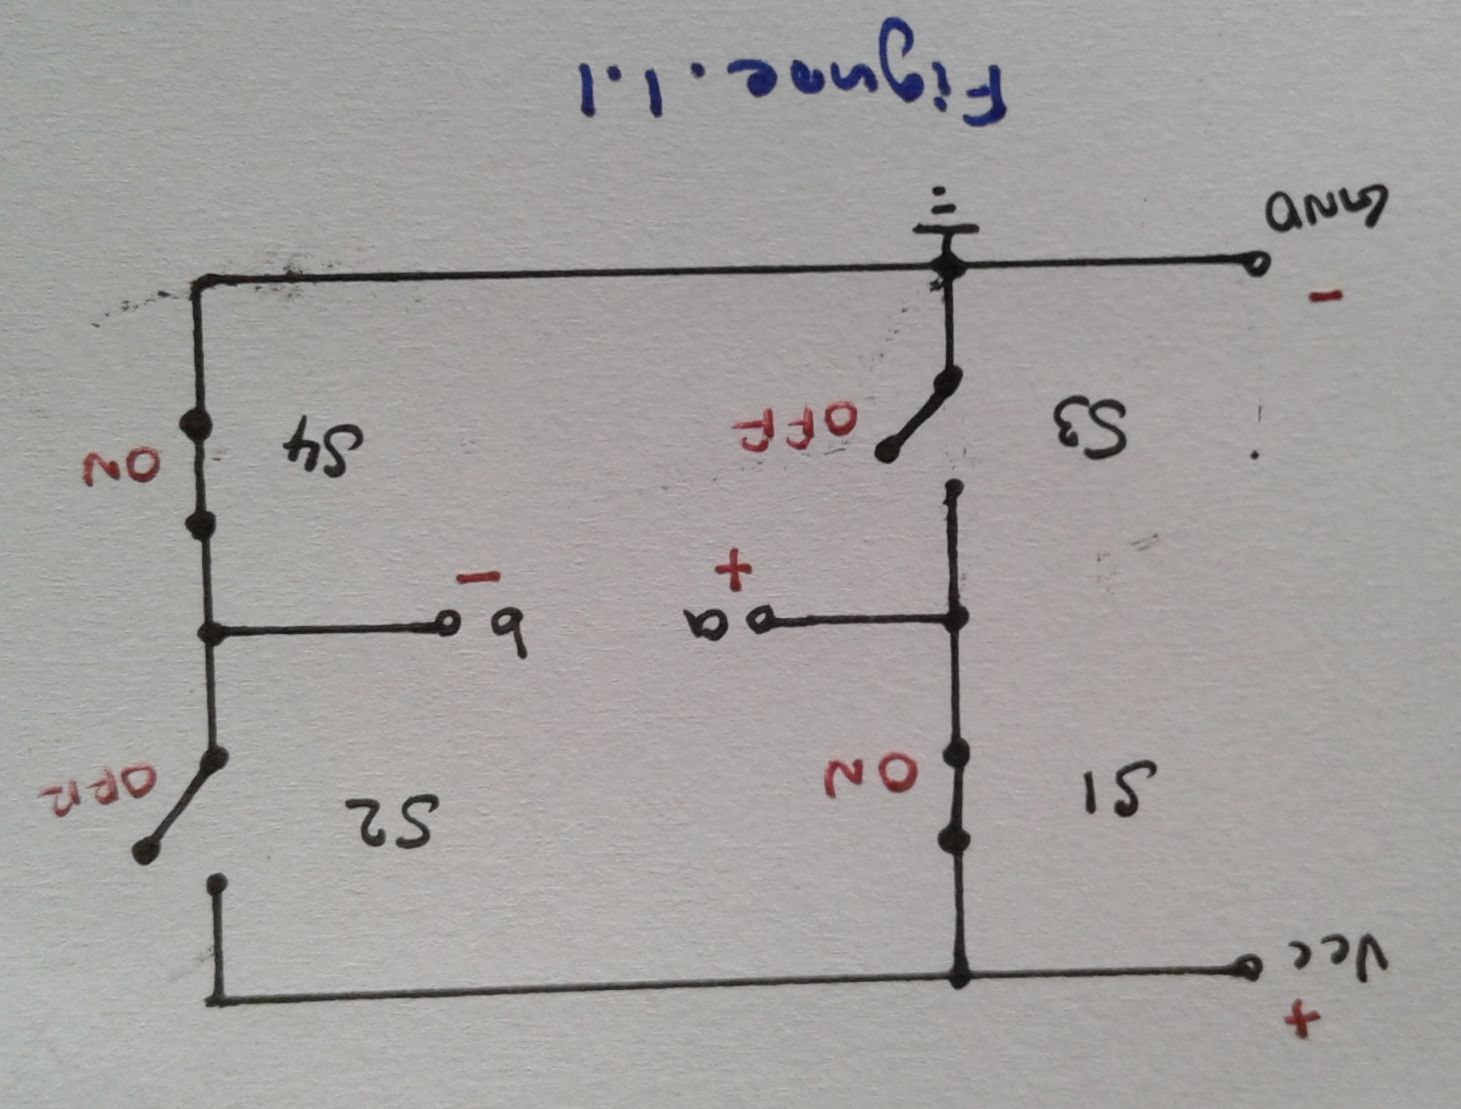 +
Vcc
S1 ON S2 OFF
a b
+ -
S3 OFF S4 ON
-
GND
Figure. 1.1